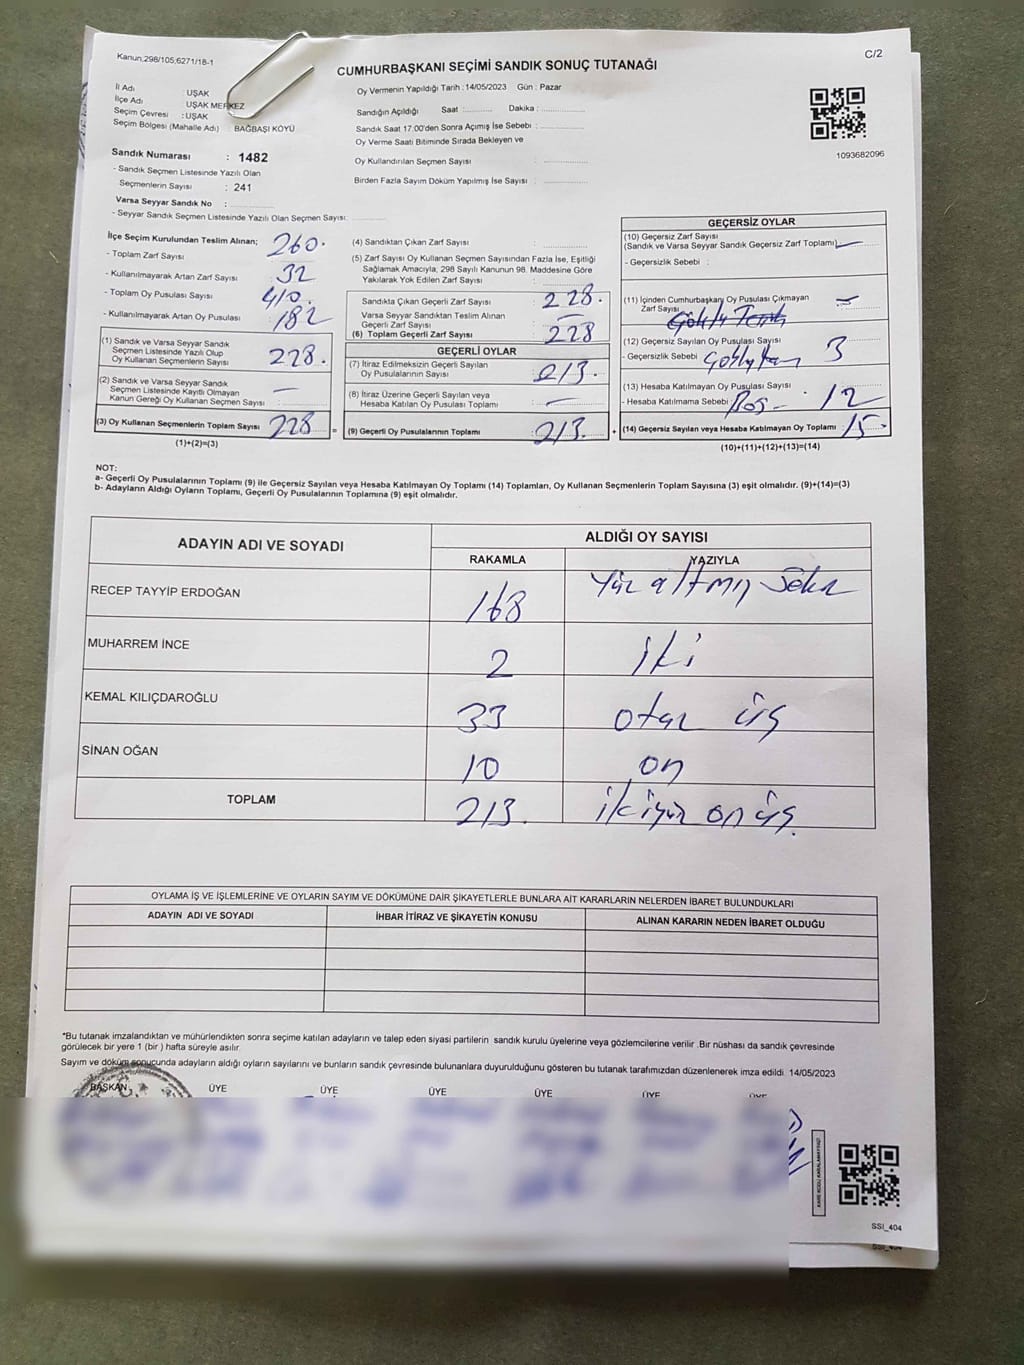 Kanun,298/105,6271/18-1
C/2
CUMHURBAŞKANI SEÇİMİ SANDIK SONUÇ TUTANAĞI
İl Adı : UŞAK
İlçe Adı : UŞAK MERKEZ
Seçim Çevresi : UŞAK
Seçim Bölgesi (Mahalle Adı) : BAĞBAŞI KÖYÜ
Sandık Numarası : 1482
- Sandık Seçmen Listesinde Yazılı Olan
Seçmenlerin Sayısı : 241
Varsa Seyyar Sandık No :
- Seyyar Sandık Seçmen Listesinde Yazılı Olan Seçmen Sayısı:
Oy Vermenin Yapıldığı Tarih :14/05/2023 Gün : Pazar
Sandığın Açıldığı Saat : Dakika :
Sandık Saat 17:00'den Sonra Açımış İse Sebebi :
Oy Verme Saati Bitiminde Sırada Bekleyen ve
Oy Kullandırılan Seçmen Sayısı :
Birden Fazla Sayım Döküm Yapılmış İse Sayısı :
1093682096
İlçe Seçim Kurulundan Teslim Alınan;
- Toplam Zarf Sayısı : 260.
- Kullanılmayarak Artan Zarf Sayısı : 32
- Toplam Oy Pusulası Sayısı : 410.
- Kullanılmayarak Artan Oy Pusulası : 182
(1) Sandık ve Varsa Seyyar Sandık
Seçmen Listesinde Yazılı Olup
Oy Kullanan Seçmenlerin Sayısı : 228.
(2) Sandık ve Varsa Seyyar Sandık
Seçmen Listesinde Kayıtlı Olmayan
Kanun Gereği Oy Kullanan Seçmen Sayısı : —
(3) Oy Kullanan Seçmenlerin Toplam Sayısı : 228
(1)+(2)=(3)
(4) Sandıktan Çıkan Zarf Sayısı :
(5) Zarf Sayısı Oy Kullanan Seçmen Sayısından Fazla İse, Eşitliği
Sağlamak Amacıyla, 298 Sayılı Kanunun 98. Maddesine Göre
Yakılarak Yok Edilen Zarf Sayısı :
Sandıkta Çıkan Geçerli Zarf Sayısı : 228.
Varsa Seyyar Sandıktan Teslim Alınan
Geçerli Zarf Sayısı : —
(6) Toplam Geçerli Zarf Sayısı : 228
GEÇERLİ OYLAR
(7) İtiraz Edilmeksizin Geçerli Sayılan
Oy Pusulalarının Sayısı : 213.
(8) İtiraz Üzerine Geçerli Sayılan veya
Hesaba Katılan Oy Pusulası Toplamı : —
= (9) Geçerli Oy Pusulalarının Toplamı : 213.
GEÇERSİZ OYLAR
(10) Geçersiz Zarf Sayısı
(Sandık ve Varsa Seyyar Sandık Geçersiz Zarf Toplamı) —
- Geçersizlik Sebebi :
(11) İçinden Cumhurbaşkanı Oy Pusulası Çıkmayan
Zarf Sayısı : —
(12) Geçersiz Sayılan Oy Pusulası Sayısı
- Geçersizlik Sebebi 3
(13) Hesaba Katılmayan Oy Pusulası Sayısı
- Hesaba Katılmama Sebebi Boş - 12
+ (14) Geçersiz Sayılan veya Hesaba Katılmayan Oy Toplamı : 15.
(10)+(11)+(12)+(13)=(14)
NOT:
a- Geçerli Oy Pusulalarının Toplamı (9) ile Geçersiz Sayılan veya Hesaba Katılmayan Oy Toplamı (14) Toplamları, Oy Kullanan Seçmenlerin Toplam Sayısına (3) eşit olmalıdır. (9)+(14)=(3)
b- Adayların Aldığı Oyların Toplamı, Geçerli Oy Pusulalarının Toplamına (9) eşit olmalıdır.
ADAYIN ADI VE SOYADI
ALDIĞI OY SAYISI
RAKAMLA YAZIYLA
RECEP TAYYİP ERDOĞAN 168 Yüz altmış Sekiz
MUHARREM İNCE 2 İki
KEMAL KILIÇDAROĞLU 33 otuz üç
SİNAN OĞAN 10 on
TOPLAM 213. ikiyüz on üç.
OYLAMA İŞ VE İŞLEMLERİNE VE OYLARIN SAYIM VE DÖKÜMÜNE DAİR ŞİKAYETLERLE BUNLARA AİT KARARLARIN NELERDEN İBARET BULUNDUKLARI
ADAYIN ADI VE SOYADI İHBAR İTİRAZ VE ŞİKAYETİN KONUSU ALINAN KARARIN NEDEN İBARET OLDUĞU
*Bu tutanak imzalandıktan ve mühürlendikten sonra seçime katılan adayların ve talep eden siyasi partilerin sandık kurulu üyelerine veya gözlemcilerine verilir .Bir nüshası da sandık çevresinde
görülecek bir yere 1 (bir ) hafta süreyle asılır.
Sayım ve döküm sonucunda adayların aldığı oyların sayılarını ve bunların sandık çevresinde bulunanlara duyurulduğunu gösteren bu tutanak tarafımızdan düzenlenerek imza edildi. 14/05/2023
BAŞKAN ÜYE ÜYE ÜYE ÜYE ÜYE ÜYE
KARE KODU KARALAMAYINIZ!
SSI_404
SSI_404